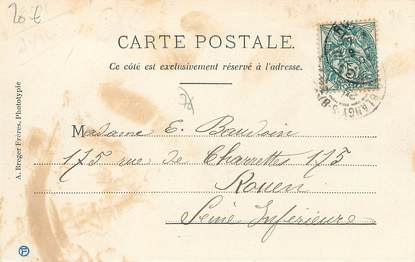 20 €
CARTE POSTALE.
Ce côté est exclusivement réservé à l'adresse.
A. Breger Frères, Phototypie
Madame E. Baudoin
175 rue de Charrettes 175
Rouen
Seine Inférieure